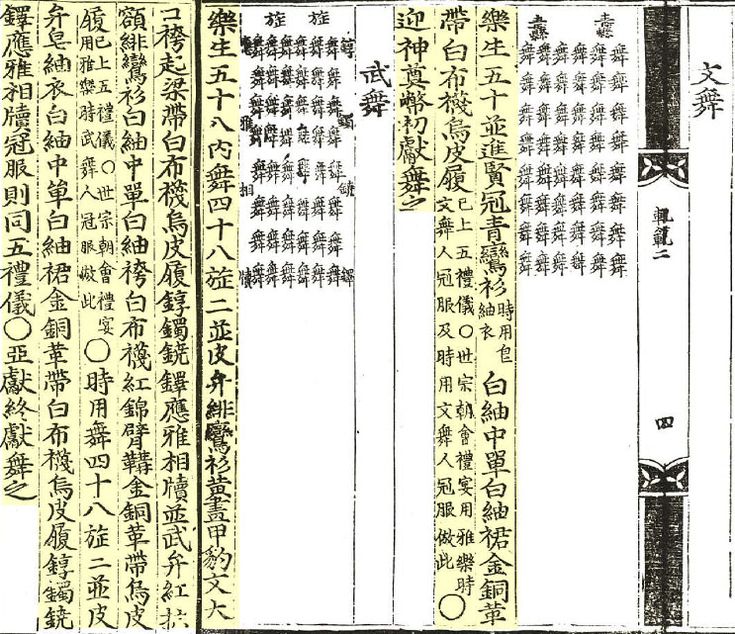 文舞
軌範二
四
纛
纛
舞舞舞舞舞舞舞舞
舞舞舞舞舞舞舞舞
舞舞舞舞舞舞舞舞
舞舞舞舞舞舞舞舞
舞舞舞舞舞舞舞舞
舞舞舞舞舞舞舞舞
樂生五十並進賢冠青鸞衫時用皂紬衣白紬中單白紬裙金銅革
帶白布襪烏皮履已上五禮儀〇世宗朝會禮宴用雅樂時文舞人冠服及時用文舞人冠服倣此〇
迎神奠幣初獻舞之
武舞
旌
旌
錞鐲鐃鐸
舞舞舞舞舞舞舞舞
舞舞舞舞舞舞舞舞
舞舞舞舞舞舞舞舞
舞舞舞舞舞舞舞舞
舞舞舞舞舞舞舞舞
舞舞舞舞舞舞舞舞
應雅相牘
樂生五十八內舞四十八旌二並皮弁緋鸞衫黃畫甲豹文大
口袴起梁帶白布襪烏皮履錞鐲鐃鐸應雅相牘並武弁紅抹
額緋鸞衫白紬中單白紬袴白布襪紅錦臂鞲金銅革帶烏皮
履已上五禮儀〇世宗朝會禮宴用雅樂時武舞人冠服倣此〇時用舞四十八旌二並皮
弁皂紬衣白紬中單白紬裙金銅革帶白布襪烏皮履錞鐲鐃
鐸應雅相牘冠服則同五禮儀〇亞獻終獻舞之